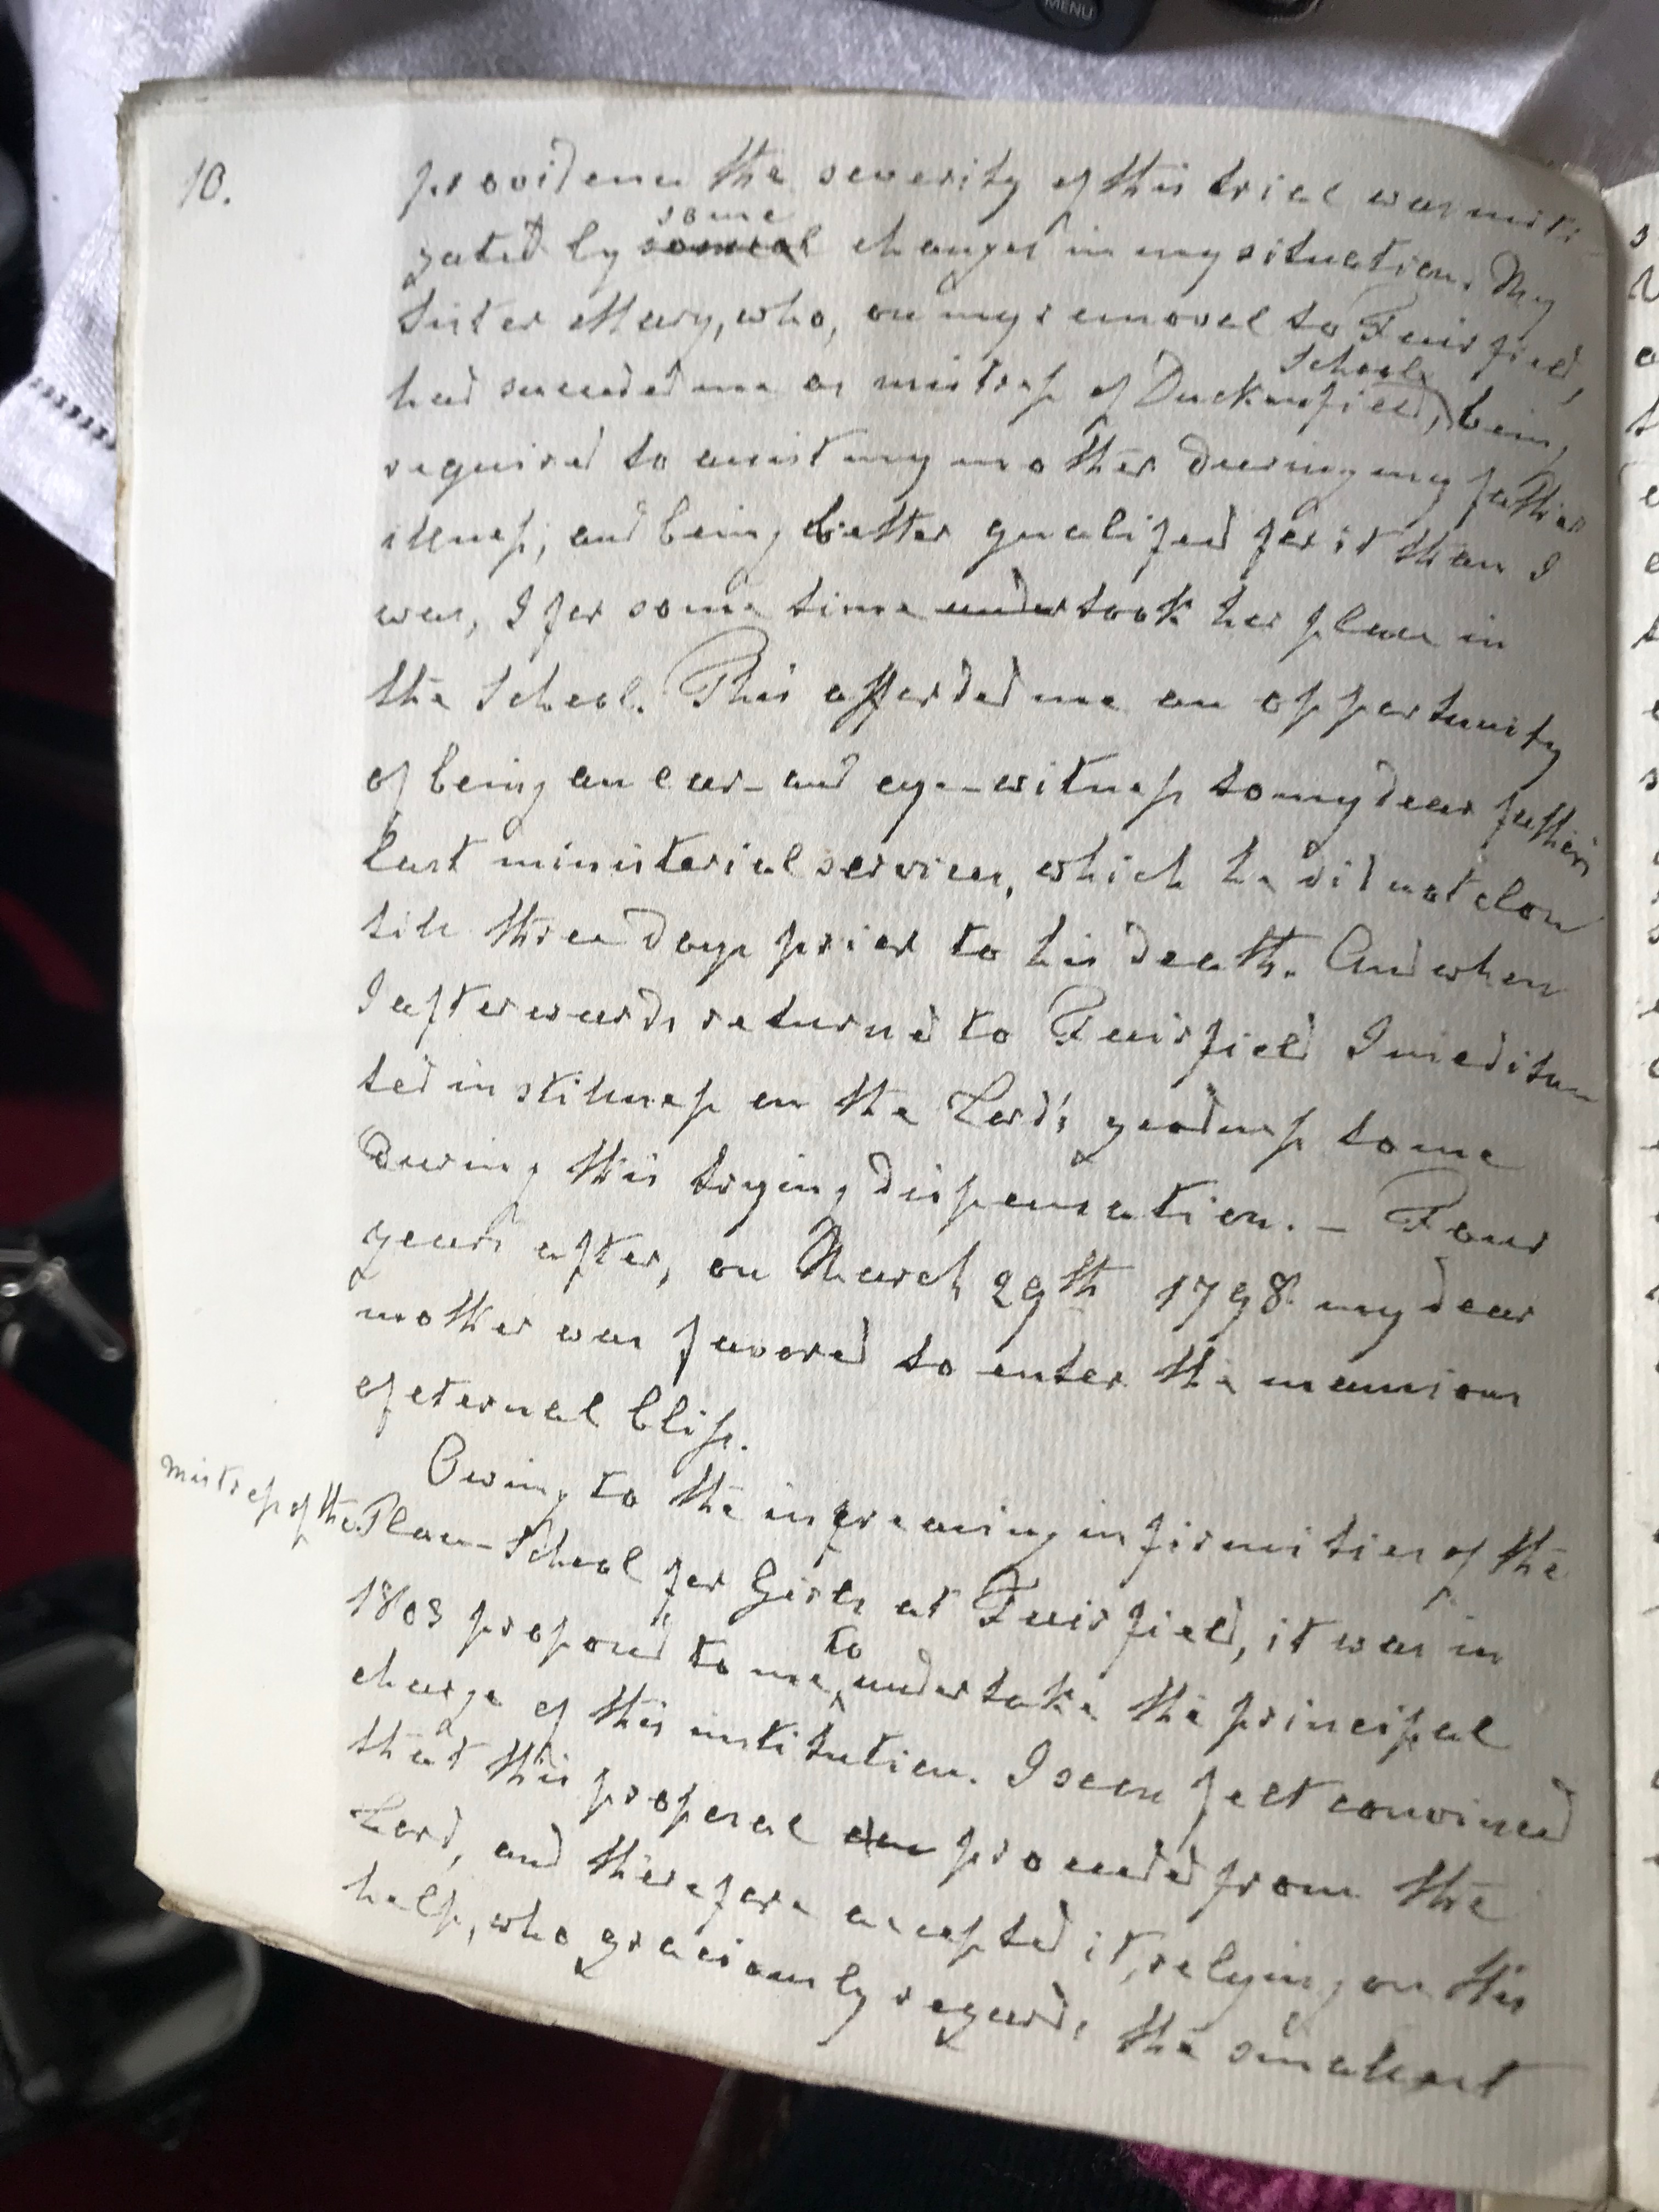 MENU
10.
providence the severity of this trial was miti-
some
gated by several changes in my situation. My
Sister Mary, who, on my removal to Fairfield,
School
had succeeded me as mistress of Duckenfield, being
required to assist my mother during my father's
illness, and being better qualified for it than I
was, I for some time undertook her place in
the School. This afforded me an opportunity
of being an ear- and eye-witness to my dear father's
last ministerial services, which he did not close
till three days prior to his death. And when
I afterwards returned to Fairfield I medita-
ted in stillness on the Lord's goodness to me
during this trying dispensation. — Four
years after, on March 29th 1798 my dear
mother was favored to enter the mansions
of eternal bliss.
Owing to the increasing infirmities of the
mistress of the Place-School for Girls at Fairfield, it was in
to
1803 proposed to me undertake the principal
charge of this institution. I soon felt convinced
that this proposal proceeded from the
Lord, and therefore accepted it, relying on His
help, who graciously regards the smallest